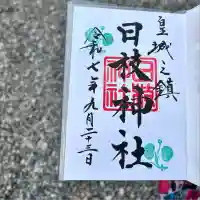 皇城之鎮
日枝神社
令和七年九月二十三日